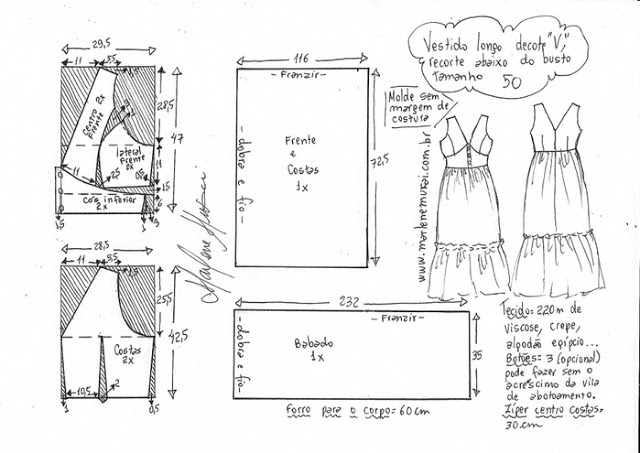 Vestido longo decote "V",
recorte abaixo do busto
Tamanho 50
Molde sem
margem de
costura
www.marlenemukai.com.br
29,5
11
5,5
1,5
28,5
47
Centro frente 2x
lateral
frente
2x
11
11
2,5
0,5
1,5
Cós inferior
2x
1,5
28,5
11
5,5
1,5
25,5
42,5
Costas
2x
10,5
2
1
0,5
116
- Franzir -
- dobra e fio -
Frente
e
Costas
1x
72,5
232
- Franzir -
- dobra e fio -
Babado
1x
35
Forro para o corpo = 60 cm
Tecido = 2,20 m de
viscose, crepe,
algodão egípcio...
Botões = 3 (opcional)
pode fazer sem o
acréscimo da vila
de abotoamento.
Zíper centro costas =
30 cm